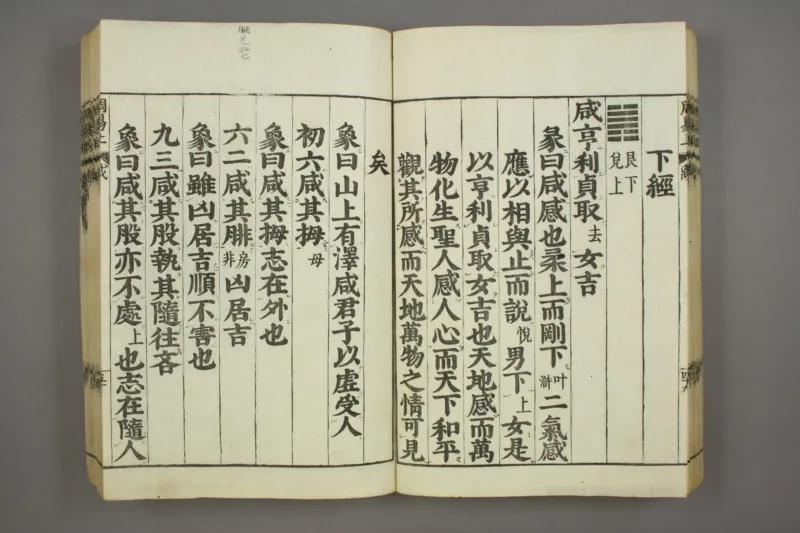 下經
艮下
兌上
咸亨利貞取去女吉
彖曰咸感也柔上而剛下叶滸二氣感
應以相與止而說悅男下上女是
以亨利貞取女吉也天地感而萬
物化生聖人感人心而天下和平
觀其所感而天地萬物之情可見
矣
象曰山上有澤咸君子以虛受人
初六咸其拇母
象曰咸其拇志在外也
六二咸其腓房非凶居吉
象曰雖凶居吉順不害也
九三咸其股執其隨往吝
象曰咸其股亦不處上也志在隨人
周易上 咸